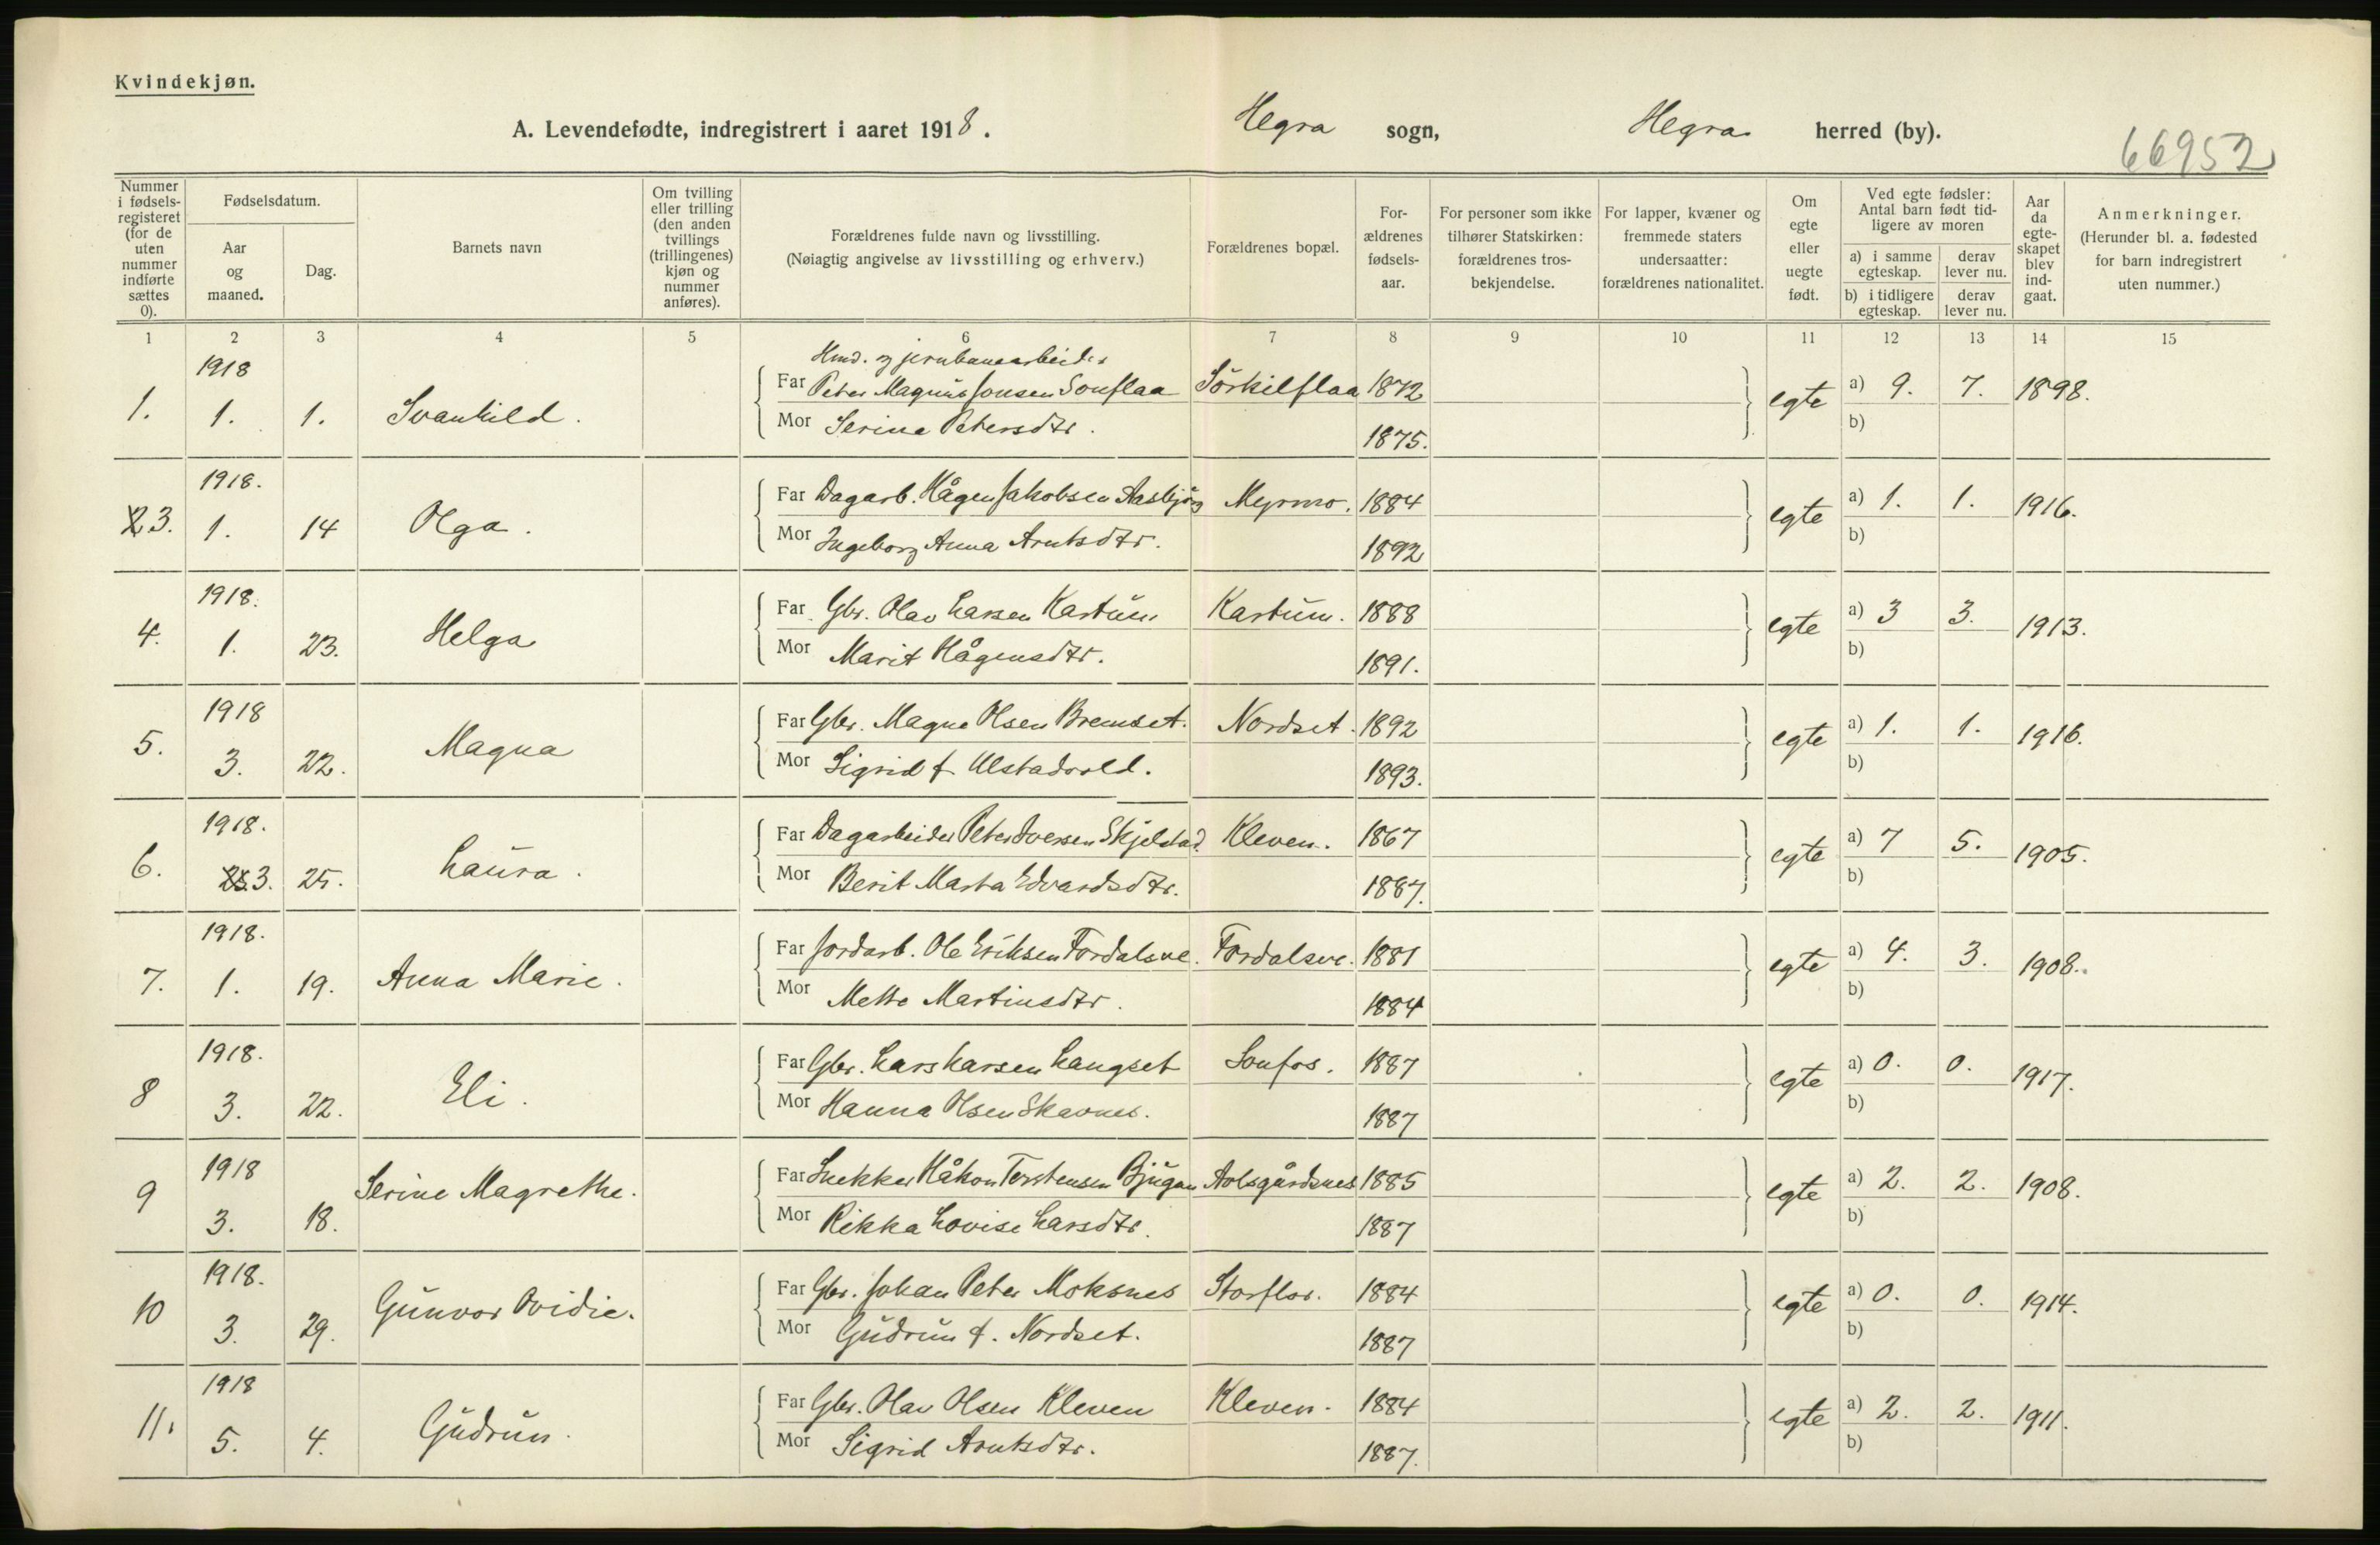 Kvindekjøn.
A. Levendefødte, indregistrert i aaret 1918. Hegra sogn, Hegra herred (by).
66952
Nummer i fødsels-registeret (for de uten nummer indførte sættes 0).
Fødselsdatum.
Aar og maaned.
Dag.
Barnets navn
Om tvilling eller trilling (den anden tvillings (trillingenes) kjøn og nummer anføres).
Forældrenes fulde navn og livsstilling.
(Nøiagtig angivelse av livsstilling og erhverv.)
Forældrenes bopæl.
For-ældrenes fødsels-aar.
For personer som ikke tilhører Statskirken: forældrenes tros-bekjendelse.
For lapper, kvæner og fremmede staters undersaatter: forældrenes nationalitet.
Om egte eller uegte født.
Ved egte fødsler: Antal barn født tid-ligere av moren
a) i samme egteskap.
derav lever nu.
b) i tidligere egteskap.
derav lever nu.
Aar da egte-skapet blev ind-gaat.
Anmerkninger.
(Herunder bl. a. fødested for barn indregistrert uten nummer.)
1 2 3 4 5 6 7 8 9 10 11 12 13 14 15
1918 Hmd. og jernbanearbeider
1. 1. 1. Svanhild. Far Peter Magnus Jonsen Sonflaa Sörkilflaa 1872 egte a) 9. 7. 1898.
Mor Serine Petersdtr. 1875. b)
1918.
3. 1. 14 Olga. Far Dagarb. Hågen Jakobsen Aasbjörg Myrmo. 1884 egte a) 1. 1. 1916.
Mor Ingeborg Anna Arntsdtr. 1892 b)
1918.
4. 1. 23. Helga Far Gbr. Olav Larsen Kartum Kartum. 1888 egte a) 3 3. 1913.
Mor Marit Hågensdtr. 1891. b)
1918
5. 3. 22. Magna Far Gbr. Magne Olsen Bremset. Nordset. 1892 egte a) 1. 1. 1916.
Mor Sigrid f. Ulstadvold. 1893. b)
1918.
6. 3. 25. Laura. Far Dagarbeider Peter Iversen Skjelstad. Kleven. 1867 egte a) 7 5. 1905.
Mor Berit Marta Edvardsdtr. 1887. b)
1918.
7. 1. 19. Anna Marie. Far Jordarb. Ole Eriksen Fordalsve. Fordalsve. 1881 egte a) 4. 3. 1908.
Mor Mette Martinsdtr. 1884 b)
1918.
8 3. 22. Eli. Far Gbr. Lars Larsen Langset Sonfos. 1887 egte a) 0. 0. 1917.
Mor Hanna Olsen Skavnes. 1887 b)
1918
9 3. 18. Serine Magrethe. Far Snekker Håkon Torstensen Bjugan Aolsgårdsnes 1885 egte a) 2. 2. 1908.
Mor Rikka Lovise Larsdtr. 1887 b)
1918.
10 3. 29. Gunvor Ovidie. Far Gbr. Johan Peter Moksnes Storflor. 1884 egte a) 0. 0. 1914.
Mor Gudrun f. Nordset. 1887 b)
1918
11. 5. 4. Gudrun. Far Gbr. Olav Olsen Kleven Kleven. 1884 egte a) 2. 2. 1911.
Mor Sigrid Arntsdtr. 1887. b)